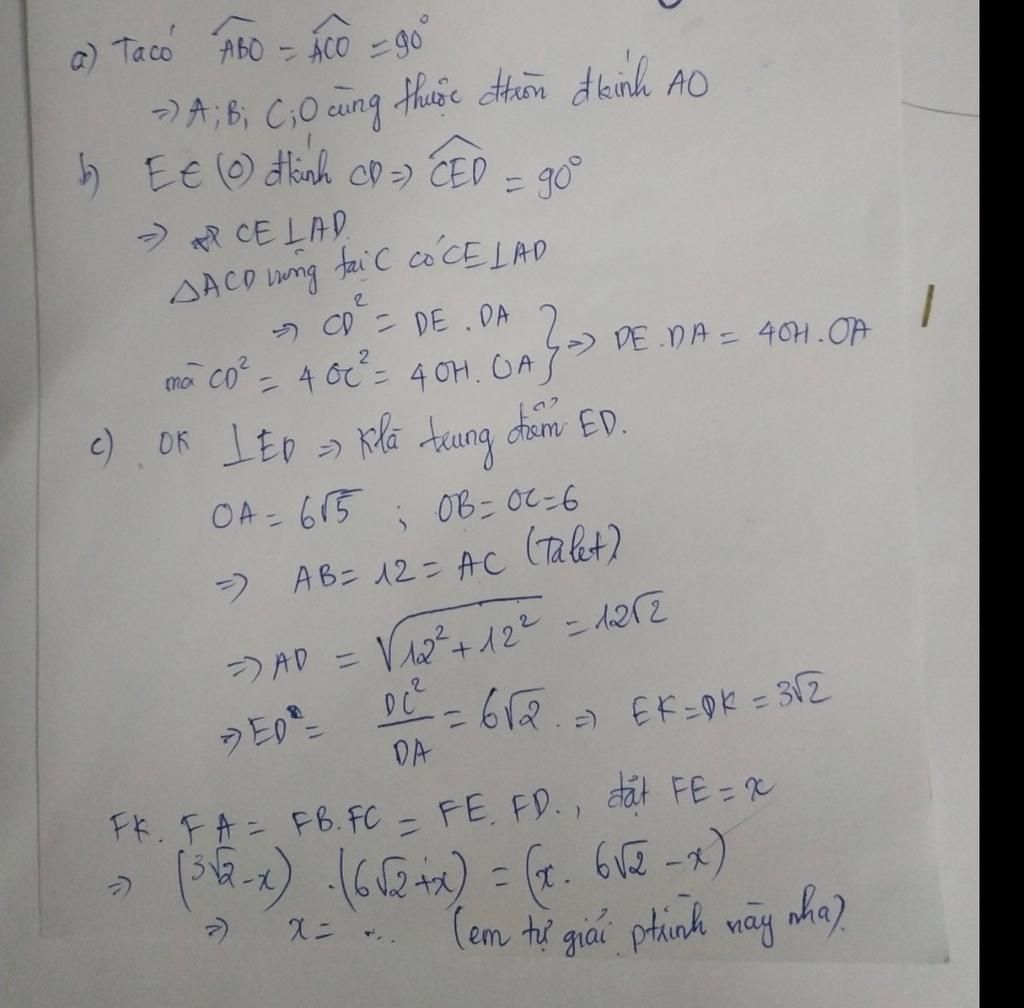 a) Ta có $\widehat{ABO} = \widehat{ACO} = 90^\circ$
=> A; B; C; O cùng thuộc đtròn đkính AO
b) E ∈ (O) đkính CD => $\widehat{CED} = 90^\circ$
=> CE ⊥ AD.
△ACD vuông tại C có CE ⊥ AD
=> CD² = DE . DA
mà CD² = 4 OC² = 4 OH. OA } => DE . DA = 4OH . OA
c) OK ⊥ ED => K là trung điểm ED.
OA = 6√5 ; OB = OC = 6
=> AB = 12 = AC (Talet)
=> AD = $\sqrt{12^2 + 12^2}$ = 12√2
=> ED = $\frac{DC^2}{DA}$ = 6√2 . => EK = DK = 3√2
FK. FA = FB. FC = FE. FD., đặt FE = x
=> (3√2 - x) . (6√2 + x) = (x. 6√2 - x)
=> x = ... (em tự giải ptrình này nha).